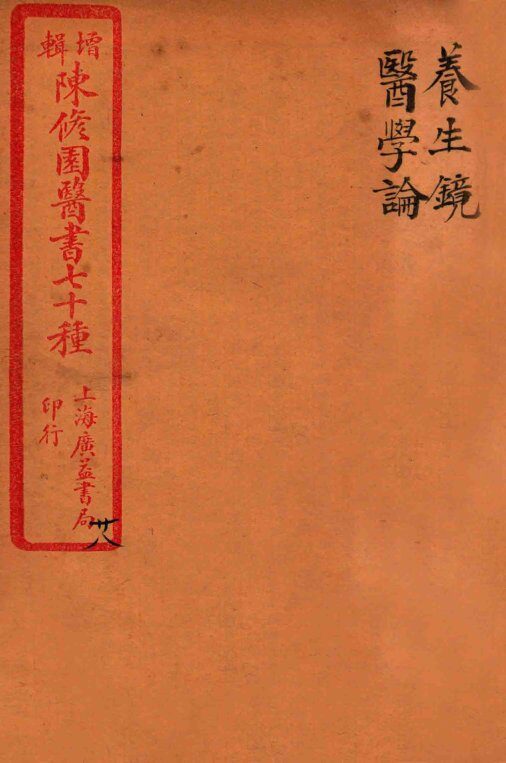 養生鏡
醫學論
增輯
陳修園醫書七十種
上海廣益書局
印行
廿八